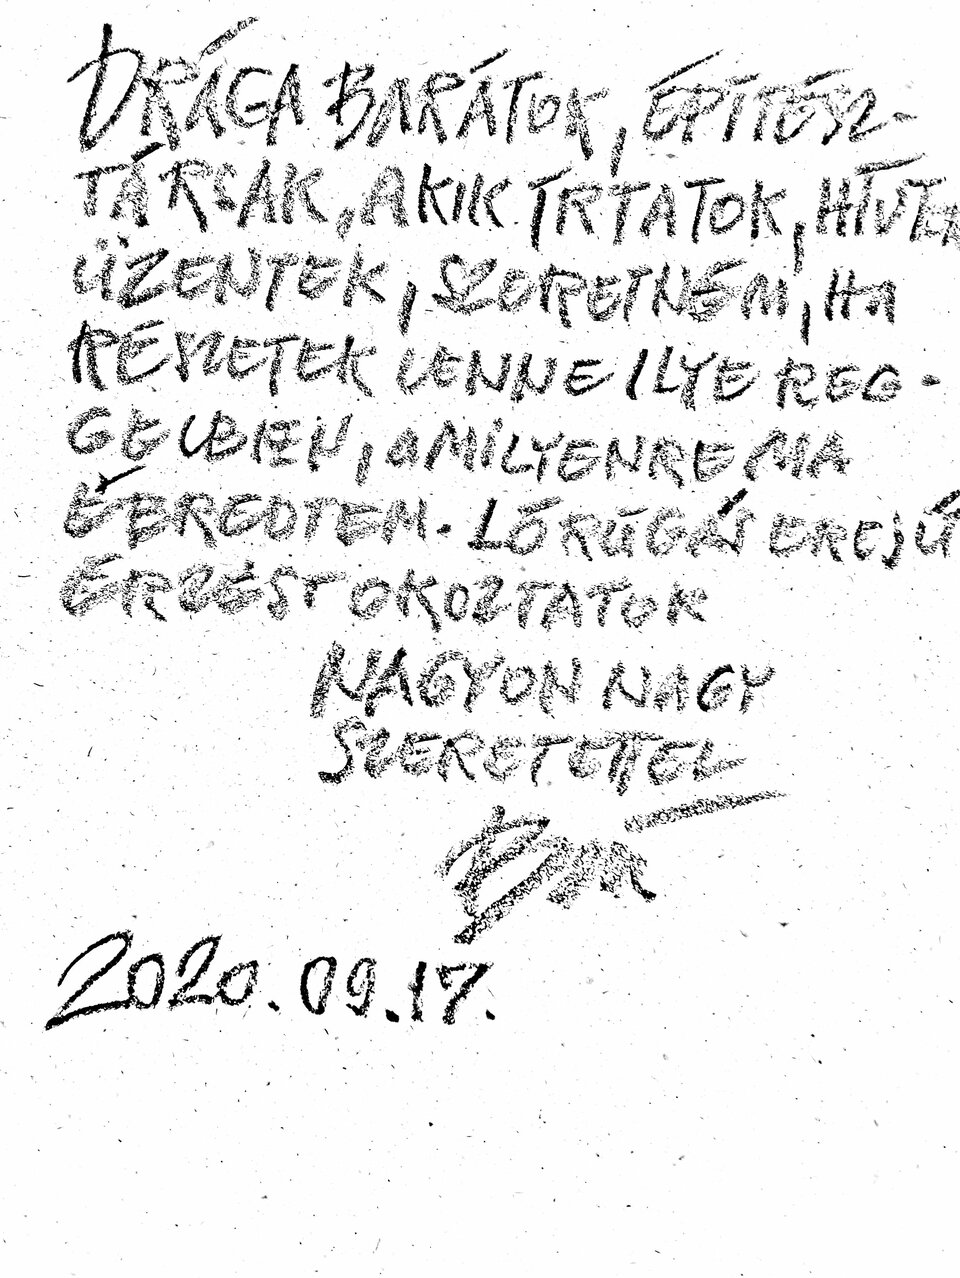 DRÁGA BARÁTOK, ÉPÍTÉSZ-
TÁRSAK, AKIK ÍRTATOK, HÍVTA
ÜZENTEK, SZERETNÉM, HA
RÉSZETEK LENNE ILYE REG-
GELBEN, AMILYENRE MA
ÉBREDTEM. LÓRÚGÁS EREJŰ
ÉRZÉST OKOZTATOK
NAGYON NAGY
SZERETETTEL
2020.09.17.